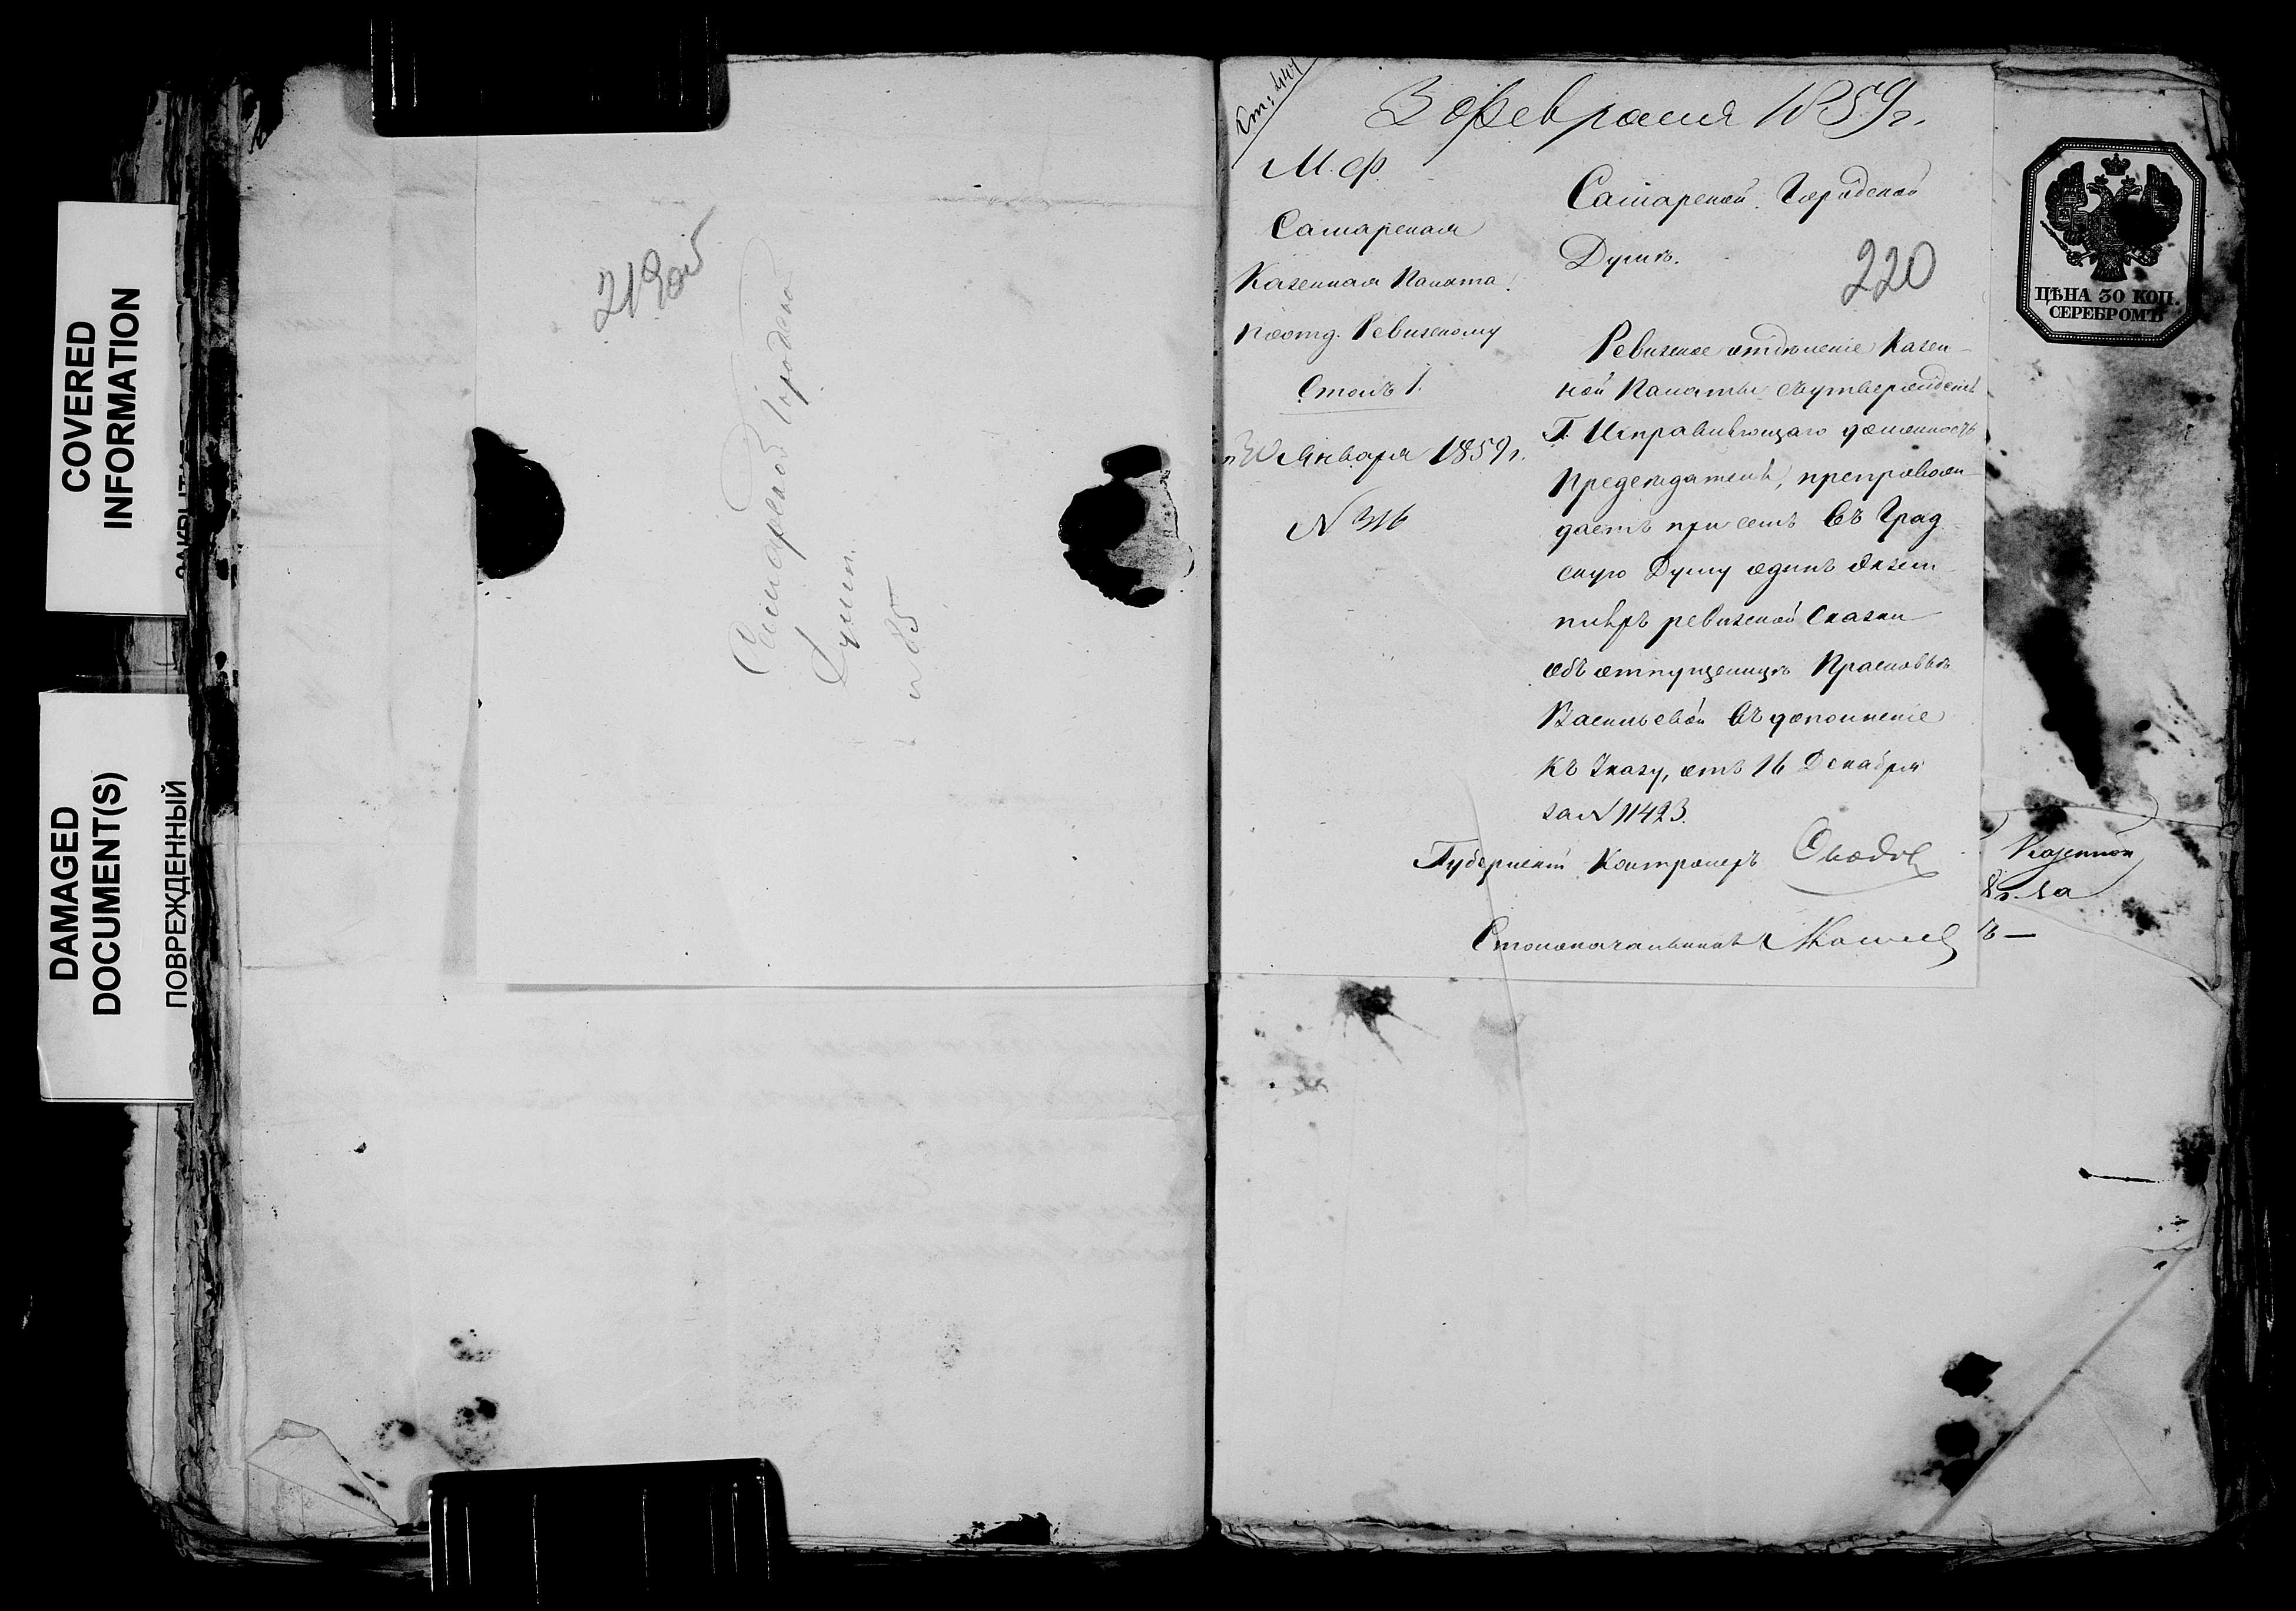 COVERED
INFORMATION
DAMAGED
DOCUMENT(S)
ПОВРЕЖДЕННЫЙ
219об
Самарской Городской
Думѣ.
№ 85
3 Февраля 1859 г.
М. Ф.
Самарская
Казенная Палата.
По отд. Ревизскому
Столъ 1.
30 Января 1859 г.
N 316
Самарской Городской
Думѣ.
220
Ревизское отдѣленіе Казен-
ной Палаты съ утвержденія
Г. Исправляющаго должность
Предсѣдателя, препровож-
даетъ при семъ въ Град-
скую Думу одинъ экзем-
пляръ ревизской сказки
объ отпущенницѣ Прасковьѣ
Васильевой въ дополненіе
къ Указу, отъ 16 Декабря
за N 11423.
Губернскій Контролеръ
Столоначальникъ
ЦѢНА 30 КОП.
СЕРЕБРОМЪ
Казенной
за
ъ —